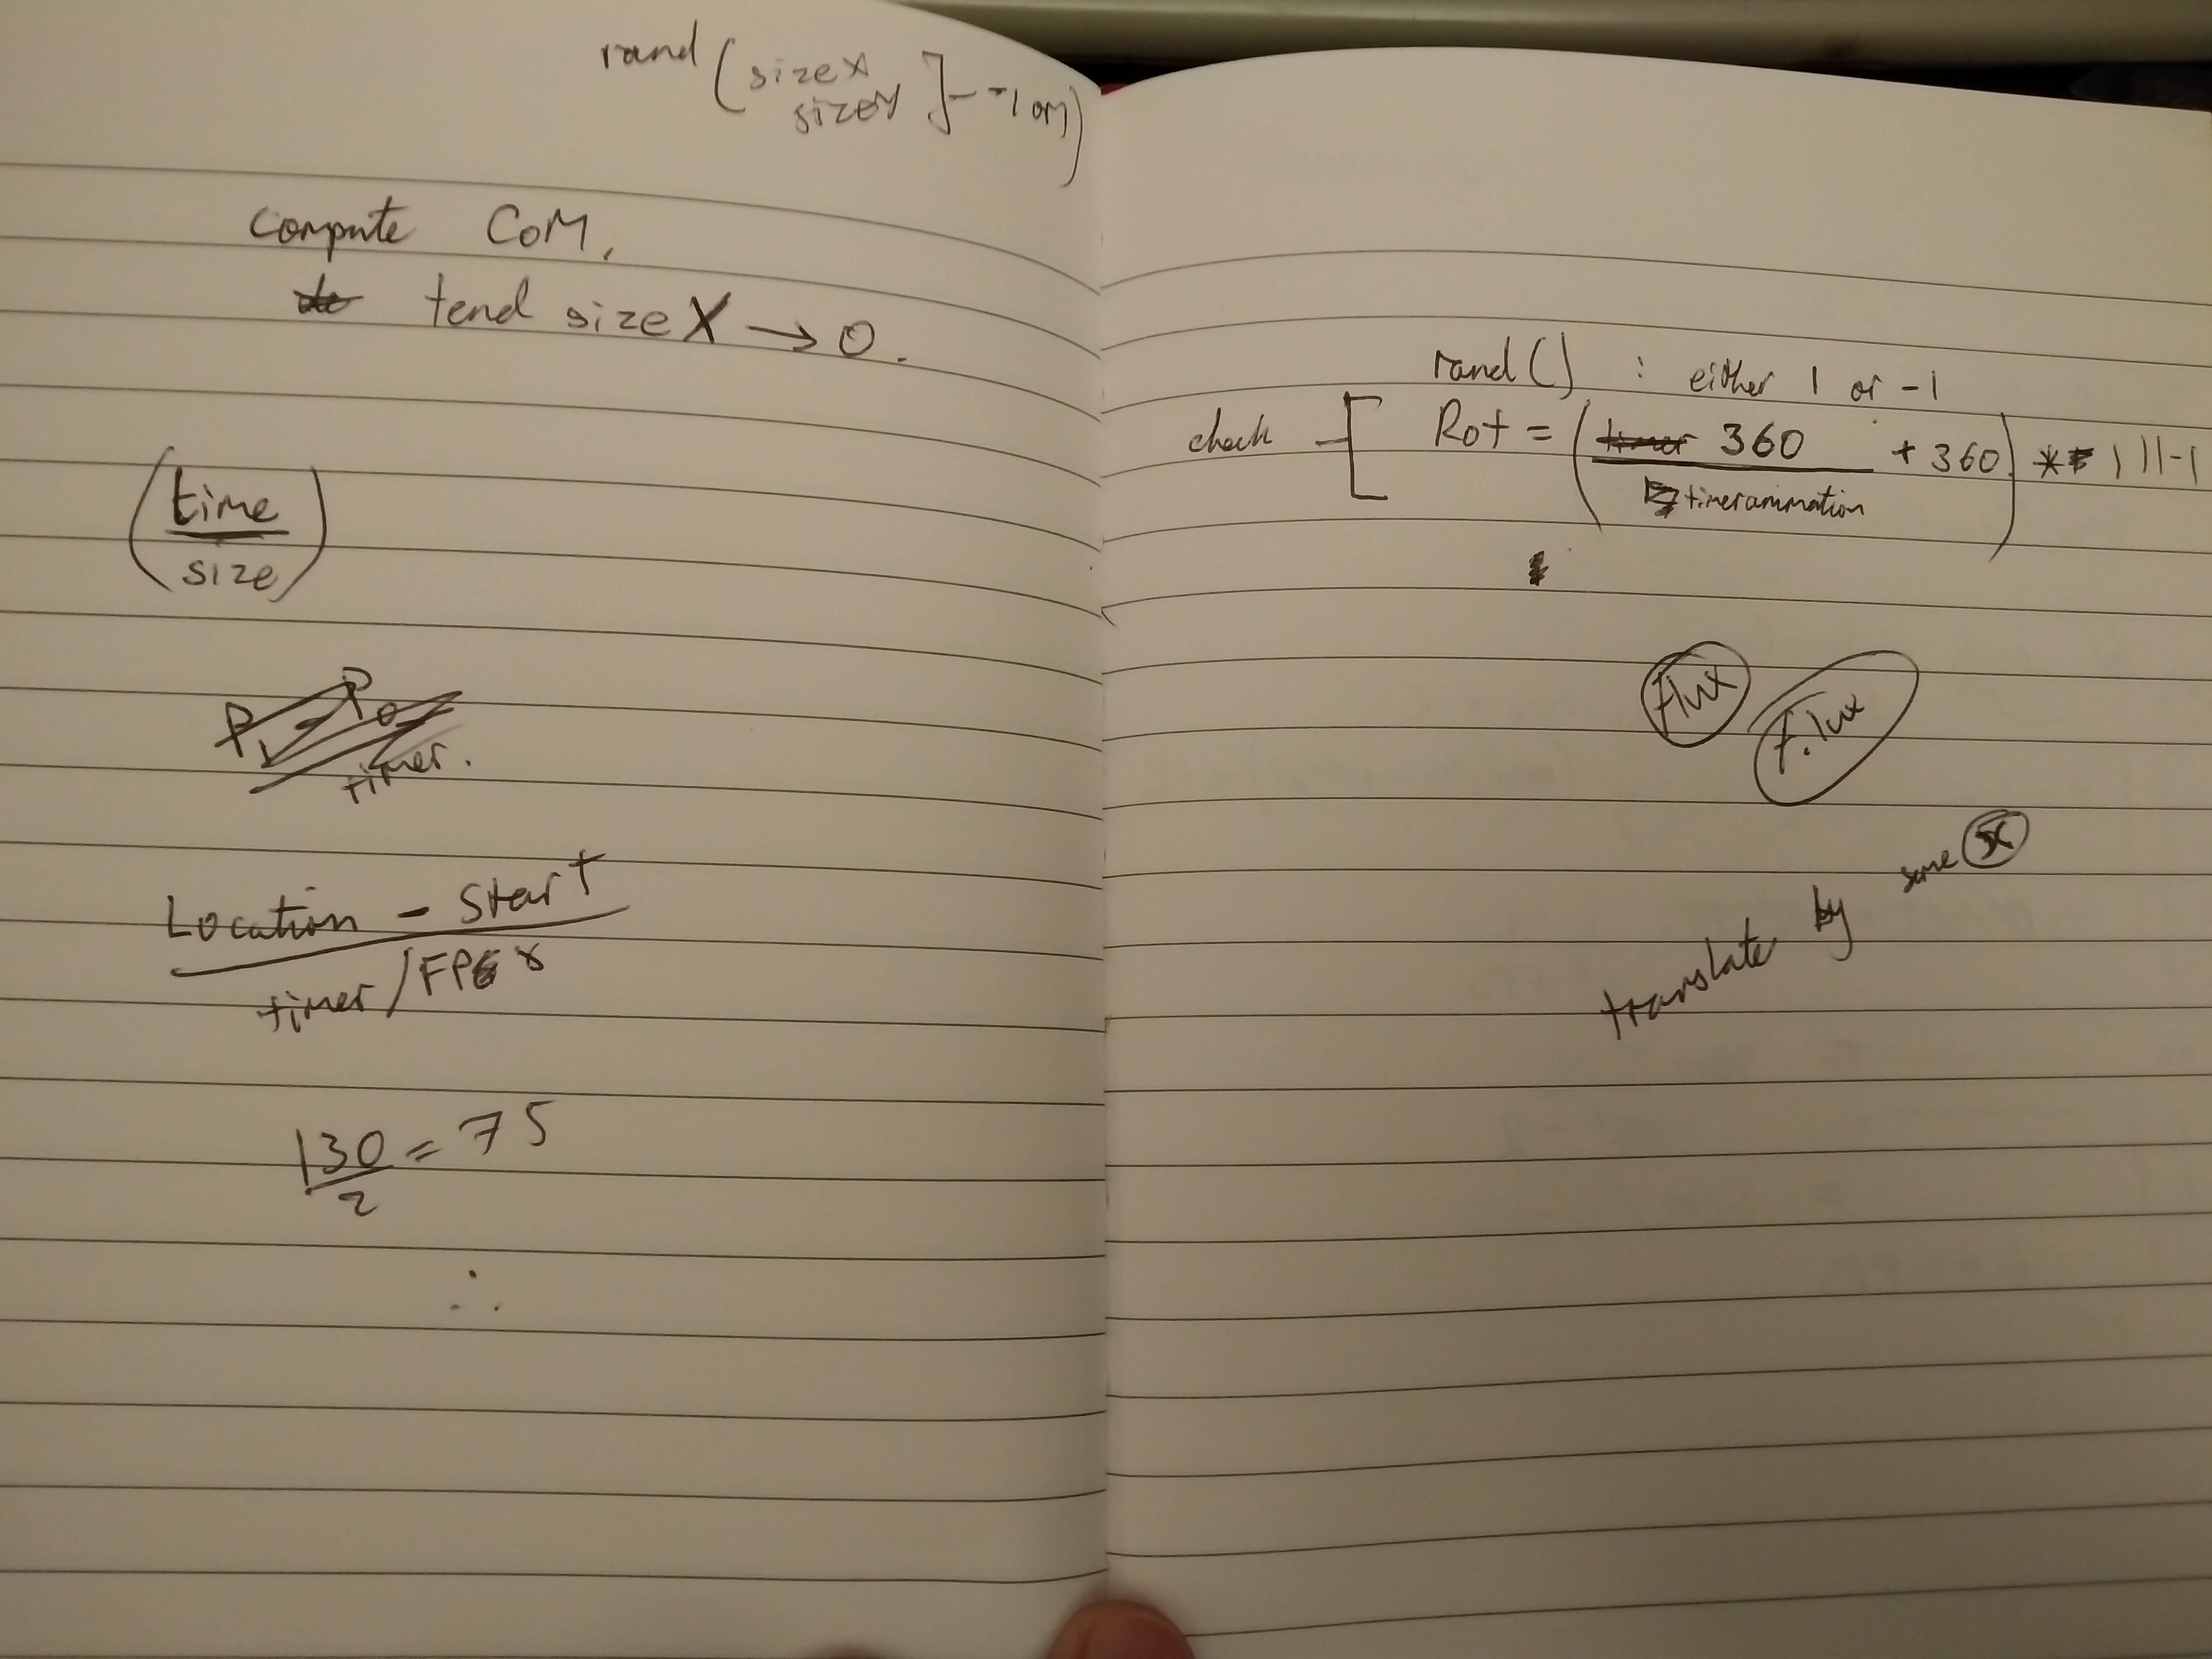 rand (sizeX
sizeY ] - -1 or 1)
compute CoM,
tend sizeX → 0.
(time
size)
P1 - P0
timer.
Location - Start
timer/FPS
130 = 75
2
∴
rand() : either 1 or -1
check [ Rot = (timer 360 + 360) * 1 || -1
timeranimation
Flux
F.lux
translate by some x